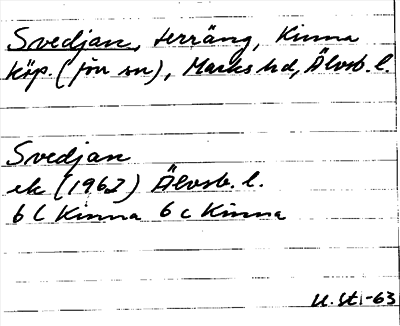 Svedjan, terräng, Kinna
köp. (förr sn), Marks hd, Älvsb. l.
Svedjan
ek (1962) Älvsb. l.
6 c Kinna 6 c Kinna
-63